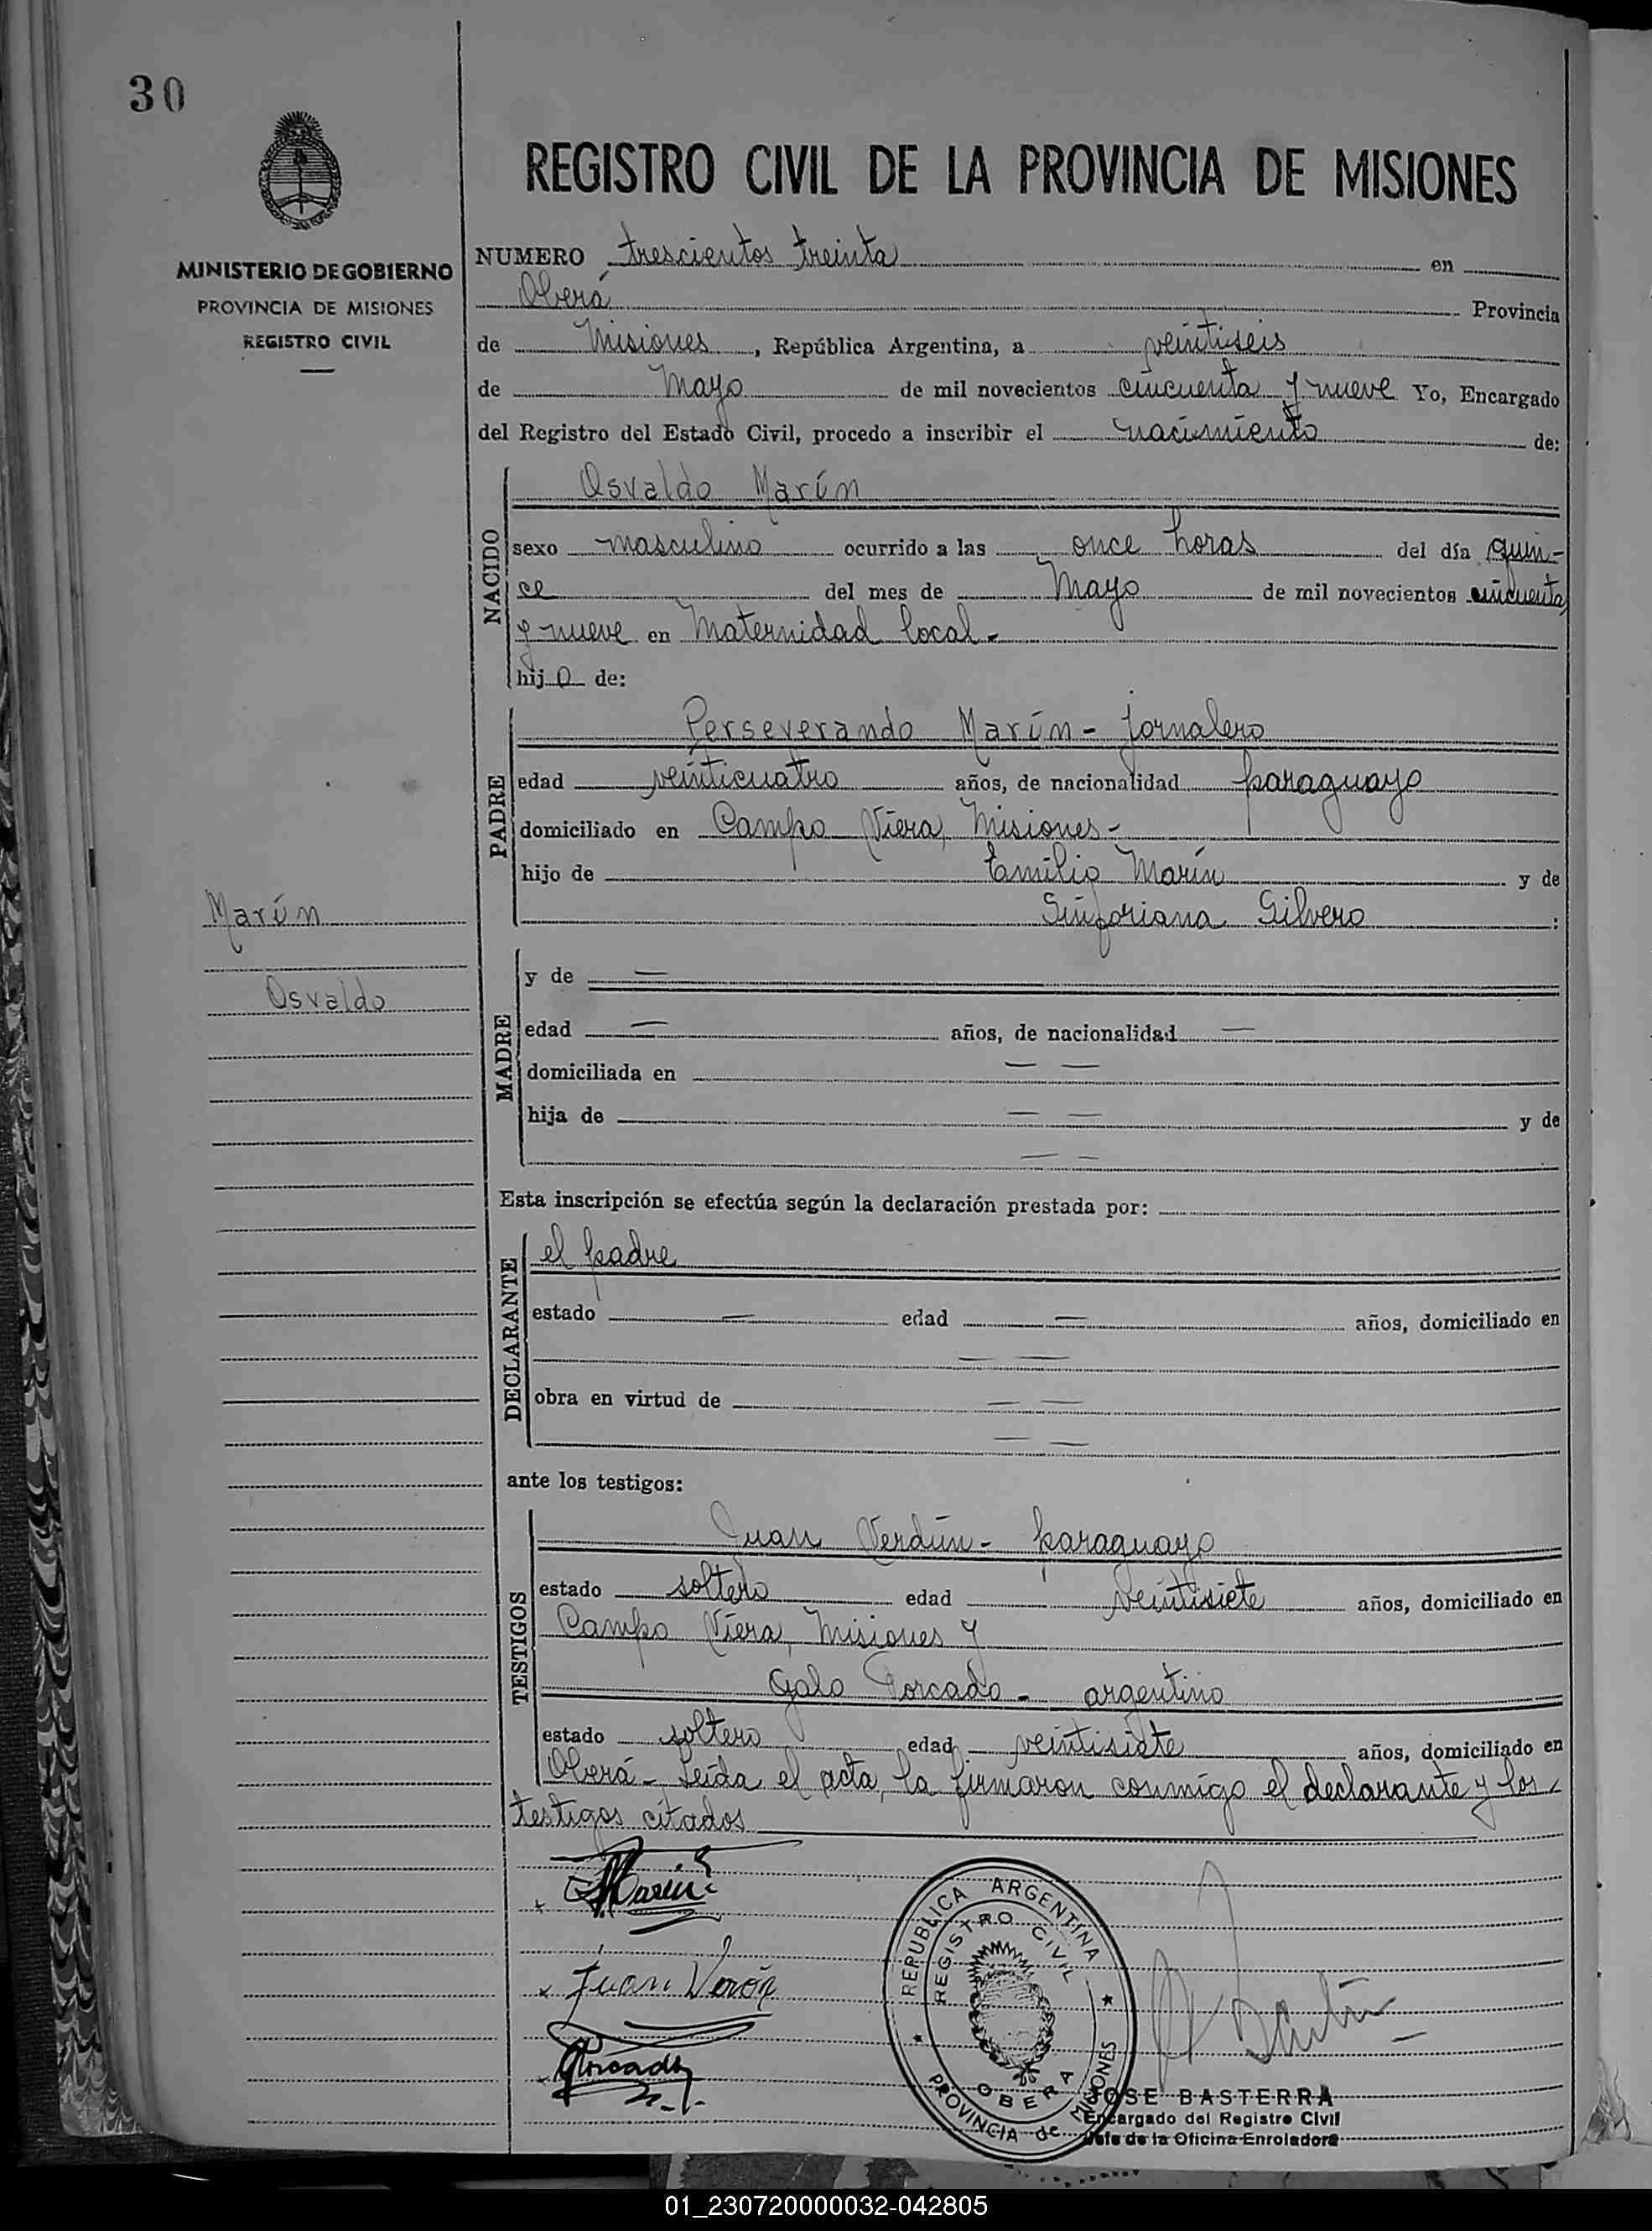 30
REGISTRO CIVIL DE LA PROVINCIA DE MISIONES
MINISTERIO DE GOBIERNO
PROVINCIA DE MISIONES
REGISTRO CIVIL
NUMERO trescientos treinta en
Oberá Provincia
de Misiones, República Argentina, a veintiseis
de Mayo de mil novecientos cincuenta y nueve Yo, Encargado
del Registro del Estado Civil, procedo a inscribir el nacimiento de:
NACIDO
Osvaldo Marín
sexo masculino ocurrido a las once horas del día quin-
ce del mes de Mayo de mil novecientos cincuenta
y nueve en Maternidad local.-
hijo de:
PADRE
Perseverando Marín - jornalero
edad veinticuatro años, de nacionalidad paraguayo
domiciliado en Campo Viera, Misiones -
hijo de Emilio Marín y de
Sinforiana Silvero :
Marín
Osvaldo
MADRE
y de —
edad — años, de nacionalidad —
domiciliada en — —
hija de — — y de
— —
Esta inscripción se efectúa según la declaración prestada por:
DECLARANTE
el padre
estado — edad — años, domiciliado en
— —
obra en virtud de — —
— —
ante los testigos:
TESTIGOS
Juan Verdún - paraguayo
estado soltero edad veintisiete años, domiciliado en
Campo Viera, Misiones y
Galo Porcado - argentino
estado soltero edad veintisiete años, domiciliado en
Oberá - Leída el acta, la firmaron conmigo el declarante y los
testigos citados
Marin
Juan Verón
REPUBLICA ARGENTINA
REGISTRO CIVIL
OBERA
PROVINCIA de MISIONES
JOSE BASTERRA
Encargado del Registro Civil
Jefe de la Oficina Enroladora
01_230720000032-042805